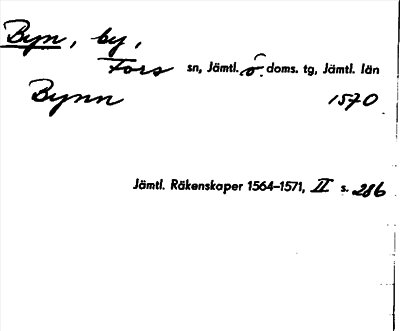 Byn, by,
Fors sn, Jämtl. ö. doms. tg, Jämtl. län
Bynn 1570
Jämtl. Räkenskaper 1564–1571, II s. 286